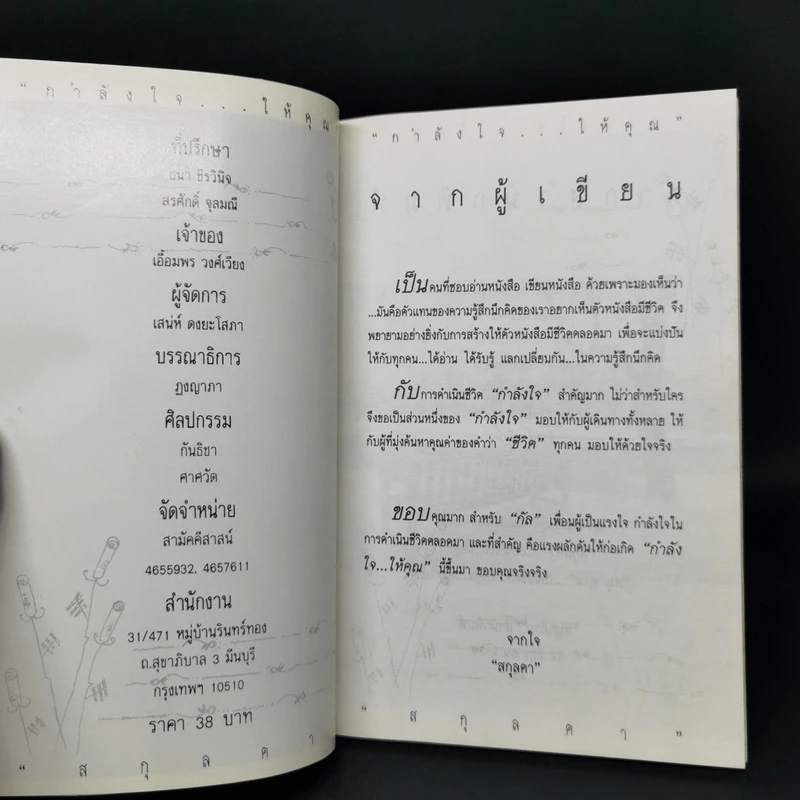 “กำลังใจ...ให้คุณ
ที่ปรึกษา
ธนา ธีรวินิจ
สรศักดิ์ จุลมณี
เจ้าของ
เอื้อมพร วงศ์เวียง
ผู้จัดการ
เสน่ห์ ดงยะโสภา
บรรณาธิการ
ฏงญาภา
ศิลปกรรม
กันธิชา
ศาศวัต
จัดจำหน่าย
สามัคคีสาสน์
4655932, 4657611
สำนักงาน
31/471 หมู่บ้านรินทร์ทอง
ถ.สุขาภิบาล 3 มีนบุรี
กรุงเทพฯ 10510
ราคา 38 บาท
“สกุลคา
“กำลังใจ...ให้คุณ”
จากผู้เขียน
เป็นคนที่ชอบอ่านหนังสือ เขียนหนังสือ ด้วยเพราะมองเห็นว่า
...มันคือตัวแทนของความรู้สึกนึกคิดของเราอยากเห็นตัวหนังสือมีชีวิต จึง
พยายามอย่างยิ่งกับการสร้างให้ตัวหนังสือมีชีวิตตลอดมา เพื่อจะแบ่งปัน
ให้กับทุกคน...ได้อ่าน ได้รับรู้ แลกเปลี่ยนกัน...ในความรู้สึกนึกคิด
กับการดำเนินชีวิต “กำลังใจ” สำคัญมาก ไม่ว่าสำหรับใคร
จึงขอเป็นส่วนหนึ่งของ “กำลังใจ” มอบให้กับผู้เดินทางทั้งหลาย ให้
กับผู้ที่มุ่งค้นหาคุณค่าของคำว่า “ชีวิต” ทุกคน มอบให้ด้วยใจจริง
ขอบคุณมาก สำหรับ “กัล” เพื่อนผู้เป็นแรงใจ กำลังใจใน
การดำเนินชีวิตตลอดมา และที่สำคัญ คือแรงผลักดันให้ก่อเกิด “กำลัง
ใจ...ให้คุณ” นี้ขึ้นมา ขอบคุณจริงจริง
จากใจ
“สกุลคา”
“สกุลคา”